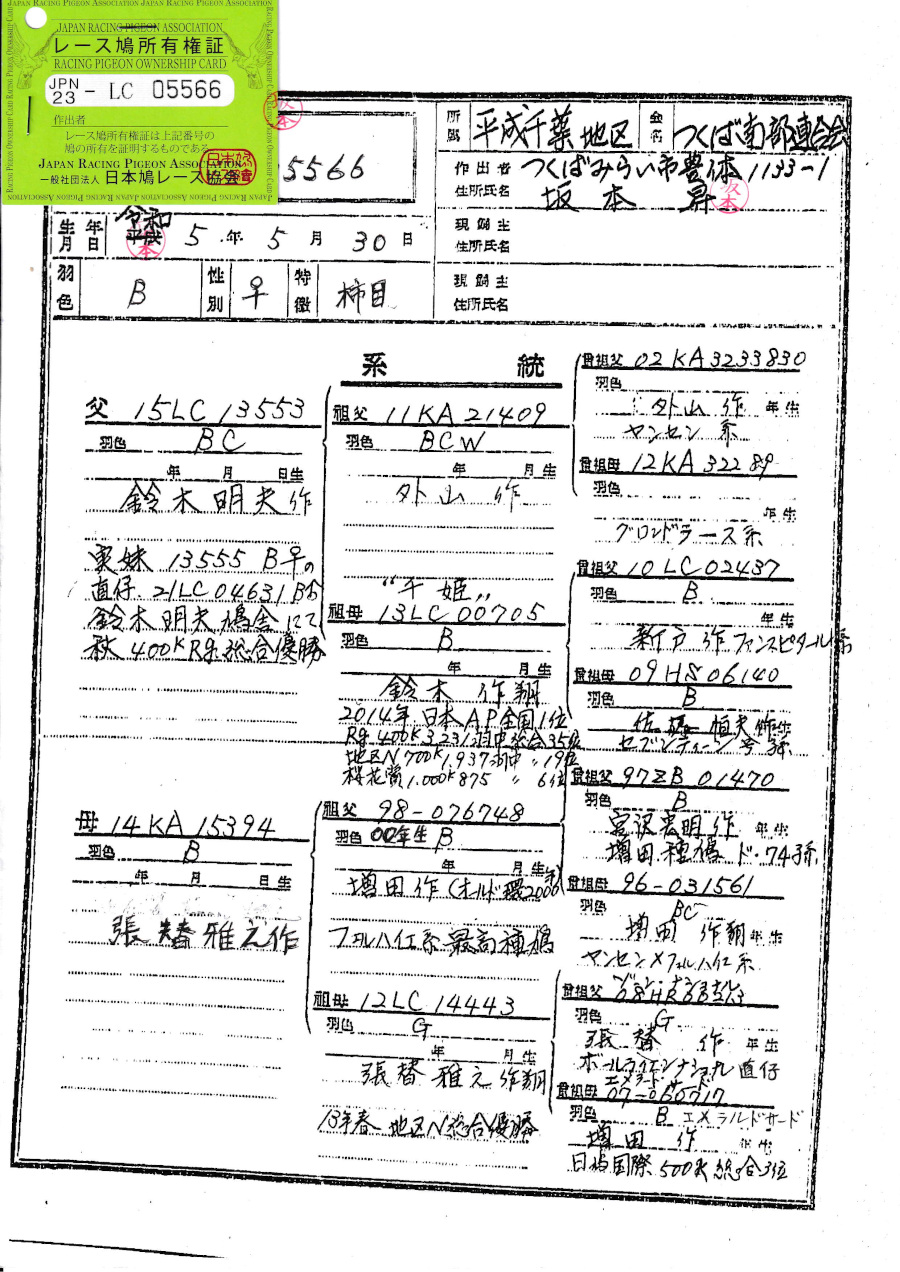 JAPAN RACING PIGEON ASSOCIATION
レース鳩所有権証
RACING PIGEON OWNERSHIP CARD
JPN 23 - LC 05566
作出者
レース鳩所有権証は上記番号の
鳩の所有を証明するものである
JAPAN RACING PIGEON ASSOCIATION
一般社団法人 日本鳩レース協会
5566
所属 平成千葉地区 会名 つくば南部連合会
作出者 住所氏名 つくばみらい市豊体1133-1
坂本 昇
生年月日 令和 平成 5年 5月 30日
現飼主 住所氏名
羽色 B 性別 ♀ 特徴 柿目
現飼主 住所氏名
系統
父 15LC 13553
羽色 BC
年 月 日生
鈴木明夫作
実妹 13555 B♀の
直仔 21LC 04631 B♂
鈴木明夫鳩舎にて
秋 400K Rg 総合優勝
母 14KA 15394
羽色 B
年 月 日生
張替雅之作
祖父 11KA 21409
羽色 BCW
年 月生
外山 作
"千姫"
祖母 13LC 00705
羽色 B
年 月生
鈴木 作翔
2014年 日本AP全国1位
Rg 400K 3,231羽中総合35位
地区N 700K 1,937羽中 〃 19位
桜花賞 1.000K 875 〃 6位
祖父 98-076748
羽色 00年生 B
年 月生
増田作 (オルド環2000年)
フェルハイ工系 最高種鳩
祖母 12LC 14443
羽色 G
年 月生
張替雅之作翔
13年春 地区N総合優勝
曽祖父 02KA3233830
羽色
外山 作 年生
ヤンセン系
曽祖母 12KA 32289
羽色
年生
グロンドラース系
曽祖父 10LC02437
羽色 B
年生
新戸 作 ファンスピタール系
曽祖母 09HS06140
羽色 B
佐藤恒夫作 年生
セブンティーン号系
曽祖父 97ZB 01470
羽色 B
宮沢宏明作 年生
増田種鳩 ド・74子系
曽祖母 96-031561
羽色 BC
増田 作翔 年生
ヤンセン×フェルハイ工系
曽祖父
羽色 G
張替 作 年生
直仔
曽祖母
羽色 B エメラルドサード
増田 作 年生
国際 500K 総合3位